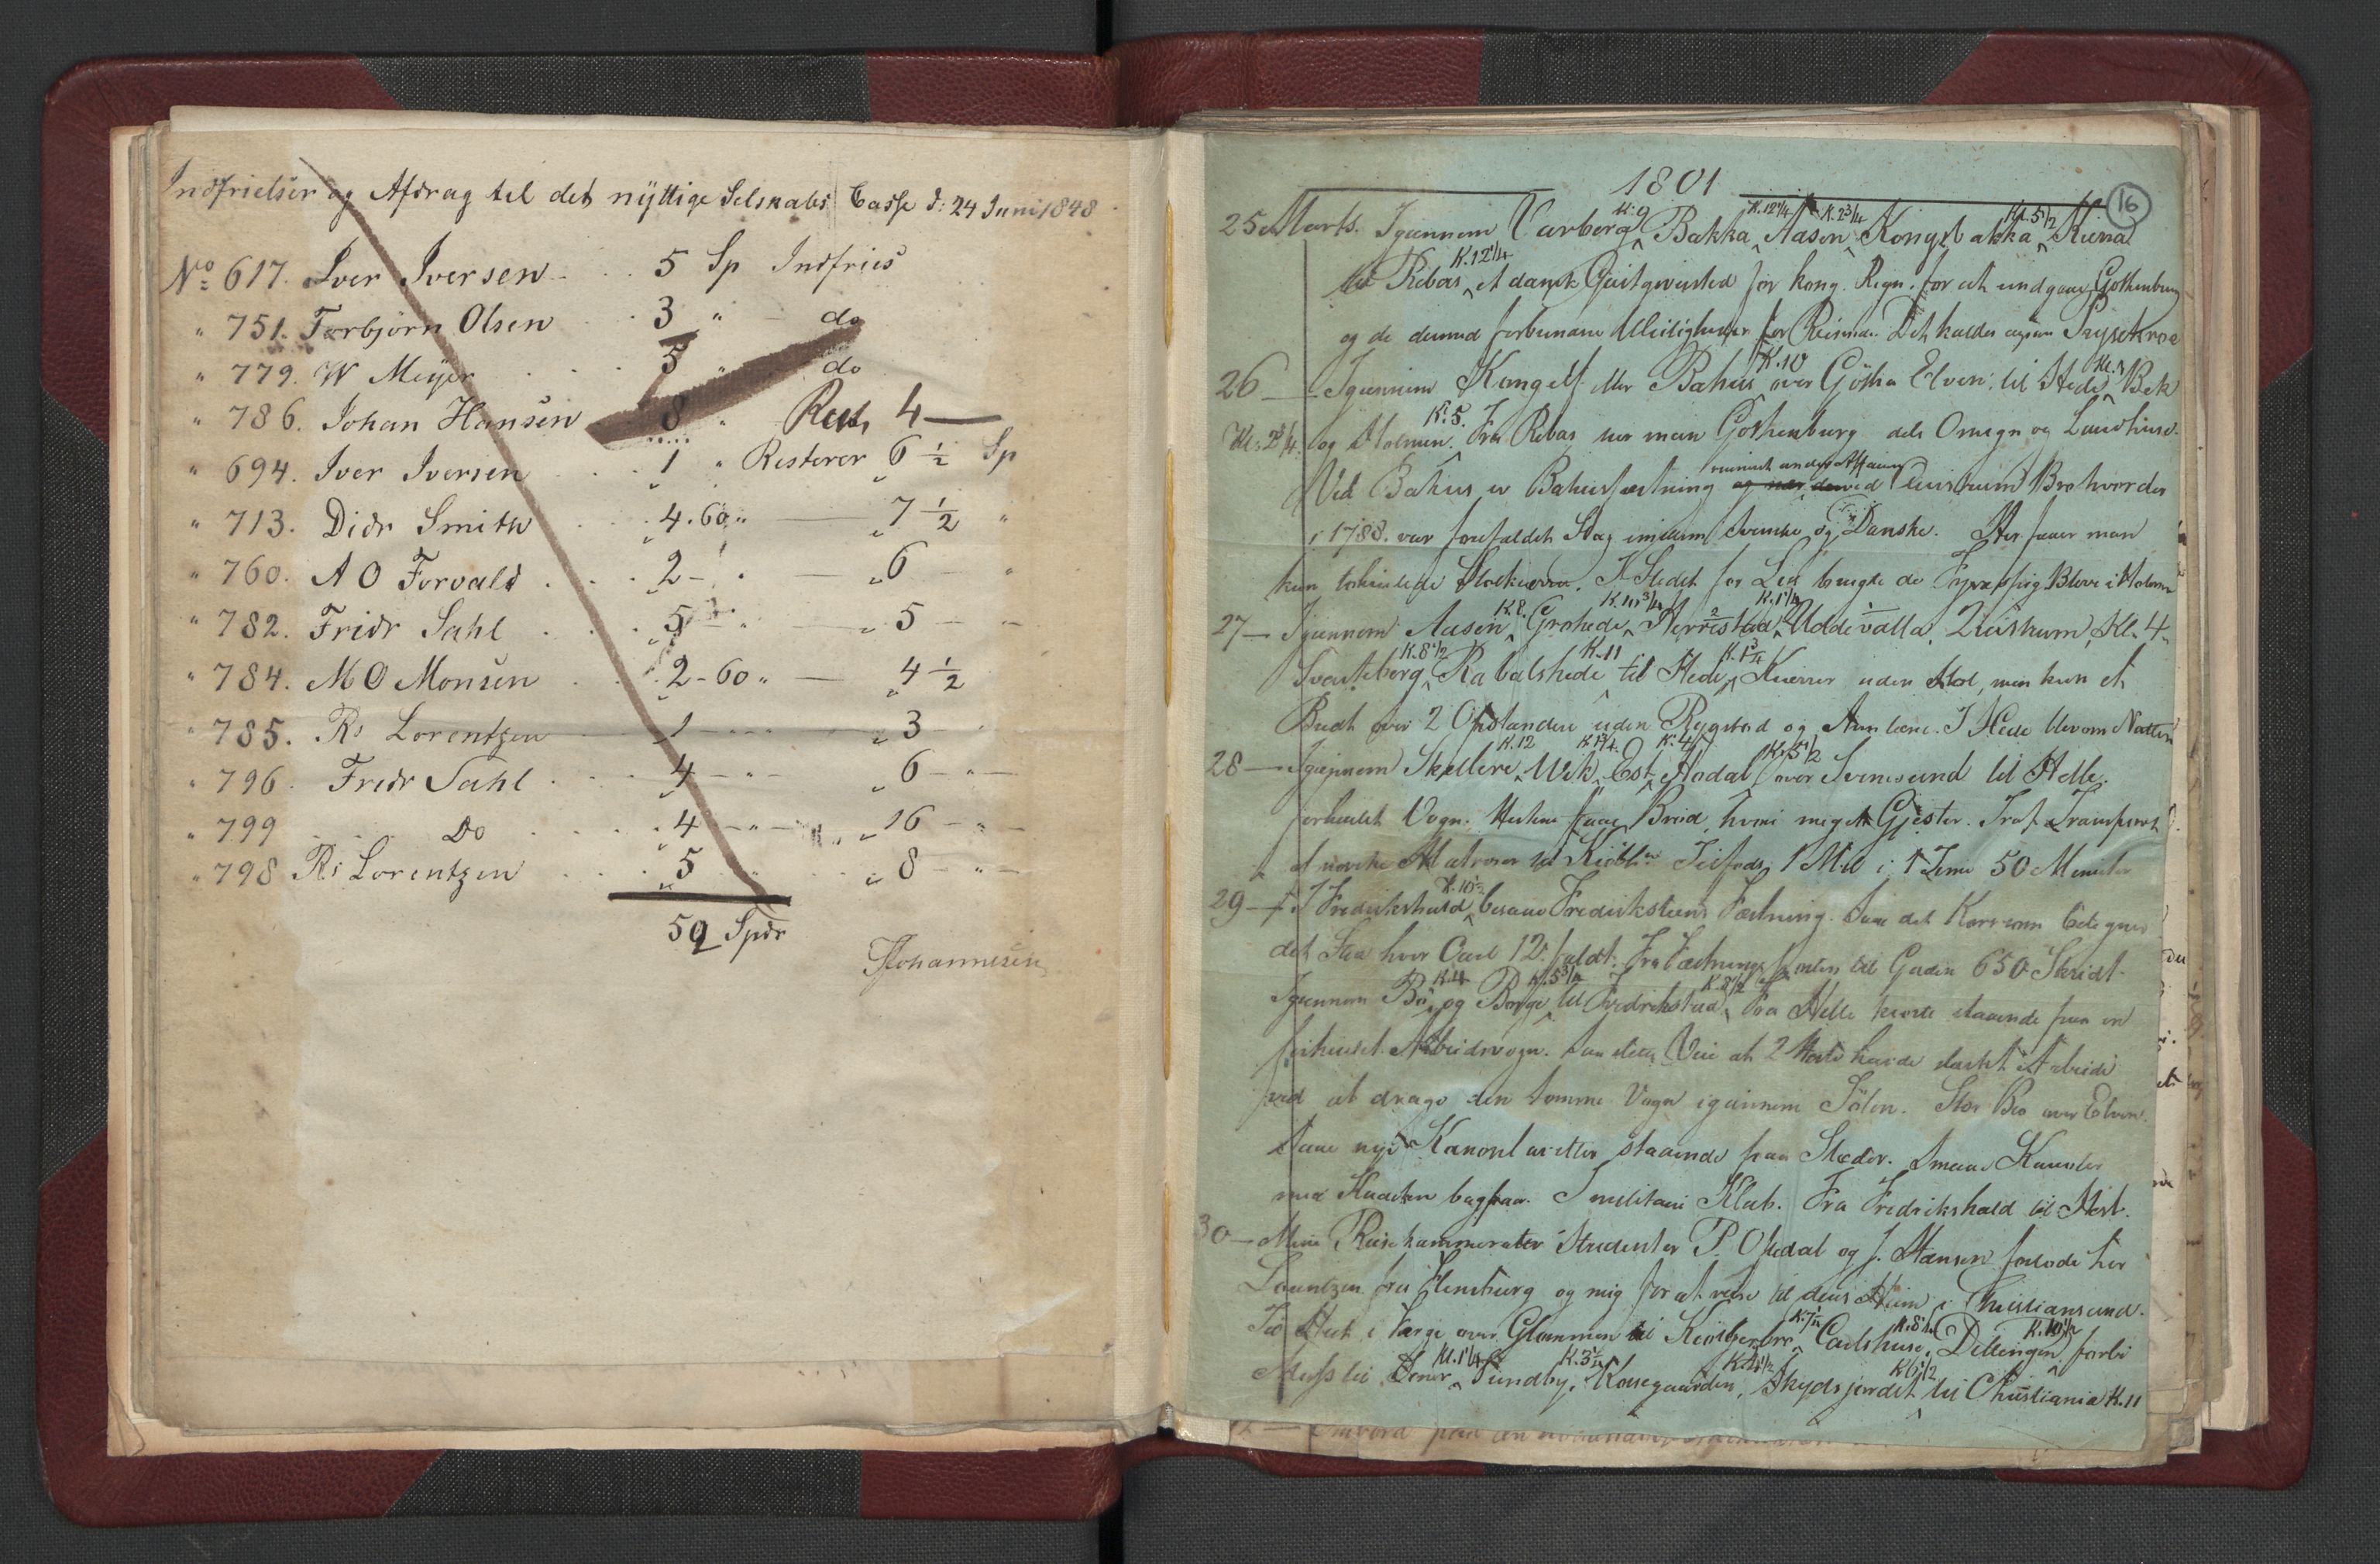 Indfrielser og Afdrag til det nyttige Selskabs Casse d: 24 Juni 1848
No 617. Iver Iversen 5 Sp Indfries
" 751. Torbjörn Olsen 3 " do
" 779. W Meyer 5 " do
" 786. Johan Hansen 8 " Rest, 4
" 694. Iver Iversen 1 " Resterer 6 1/2 Sp
" 713. Didr Smith 4.60 " 7 1/2 "
" 760. A O Forvald 2 - " 6 "
" 782. Fridr Sahl 5 - " 5 - "
" 784. M O Monsen 2-60 " 4 1/2
" 785. Rs Lorentzen 1 " 3 "
" 796. Fridr Sahl 4 - " - 6 - " -
" 799 Do 4 - " - 16 - " -
" 798 Rs Lorentzen 5 " 8 - " -
52 Spdr
Johannesen
16
1801
25 Marts. Igiennem Varberg K.9 Bakka K.12 1/4 Aasen K.2 3/4 Kongsbakka Kl.5 1/2 Kierra
til Rebas K.12 1/4 et dansk Giestgiversted for kong. Regn. for at undgaae Gothenburg
og de dermed forbundne Uleiligheder for Reisende. Det kaldes
26 — Igiennem Kongelf eller Bahus K.10 over Götha Elven, til Hede Bek
Kl. 2 3/4. og Holmen. K.5. Fra Rebas seer man Gothenburg dels Omegn og Landhuse.
Ved Bahus er Bahusfæstning og nær derved Quistrum Bro hvor der
i 1788. var forefaldet Slag imellem Svenske og Danske. Her faaer man
kun tohiulede. I Stedet for Lys brugte de i Holmen
27 — Igiennem Aasen K.8. Grohede K.10 3/4 Herrestad K.1 1/4 Uddevalla, Quistrum, Kl. 4
Svarteborg K.8 1/2 Rabalshede K.11 til Hede, K.1 3/4 Kierrer uden Stol, men kun et
Bredt over 2 Opstandere uden Rygstød og Armlæne. I Hede blev om Natten
28 — Igiennem Skellere K.12 Wik Est K.4 Hodal K.5 1/2 over Svinesund til Helle.
firehiulet Vogn. Hestene faae Brød, hvori meget Giester. Traf Transport
af norske Matroser til Kiøbhn 1 Mil i 1 Time 50 Minuter
29 — I Fredrikshald K.10 1/2 besaae Fredriksteens Fæstning. Saae det Kors som betegner
det Sted hvor Carl 12. faldt. Fra Fæstnings til Gaden 650 Skridt.
Igiennem Bö K.4 og Borge K.5 3/4 til Fredrikstad K.8 1/2 Fra Helle kiørte staaende paa en
firhiulet Arbeidsvogn. Saa slette Veie at 2 Heste havde stærkt Arbeide
ved at drage den tomme Vogn igiennem Sölen. Stor Bro over Elven.
Saae nye Kanonlavetter staaende paa Slæder. Smaae Kanoner
med bagpaa. I militair Klub. Fra Fredrikshald til Hest.
30 — Mine Reisekammerater Studenter P. Opedal og J. Hansen forlode her
Lorentzen fra Flensburg og mig for at reise til deres Hiem i Christiansund.
Tid Hest i Færge over Glommen til Kiölbergbro K.7 1/2 Carlshuse, K.8 1/2 Dillingen K.10 1/2 forbi
Moss til Soner Kl.1 1/4 Sundby, K.3 1/2 Korsegaarden, Skydsjordet K.6 1/2 til Christiania K.11